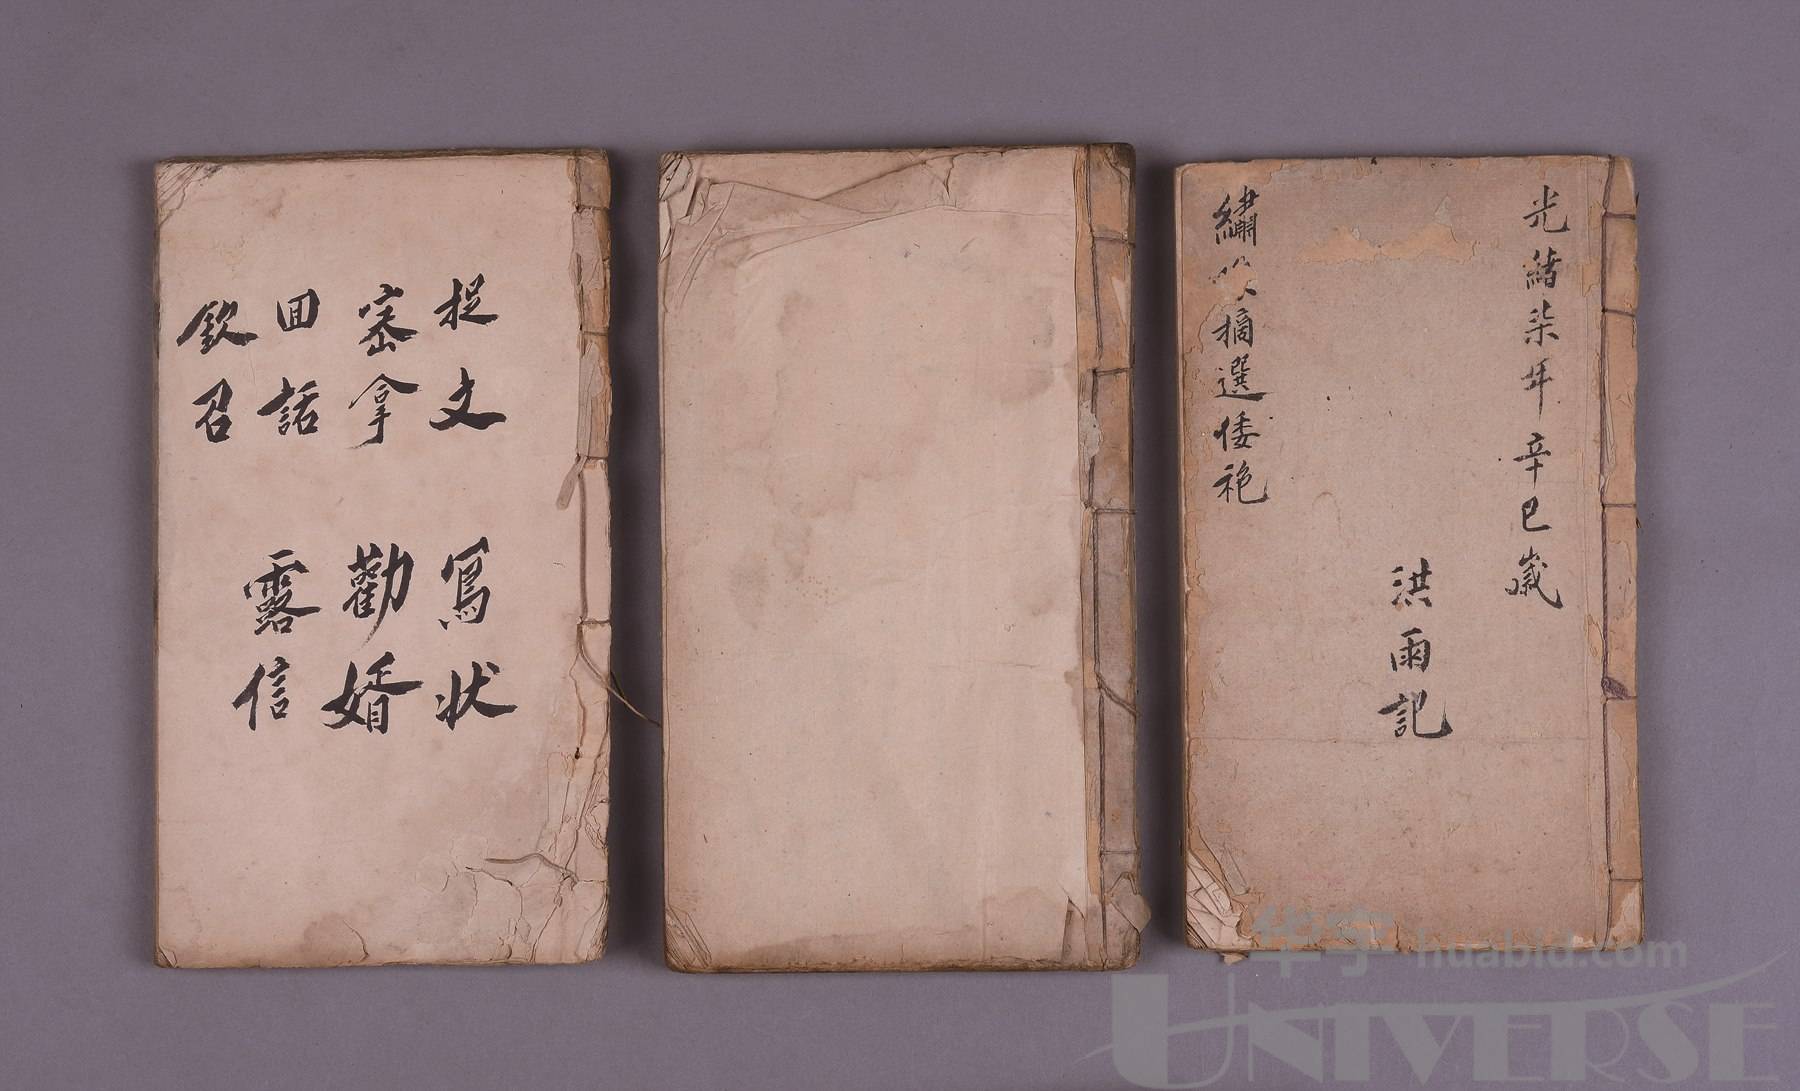 捉文 寫狀
密拿 勸婚
回話 露信
欽召
光緒柒年 辛巳歲
洪雨記
繡 摘選倭袍
华宇 huabid.com
UNIVERSE